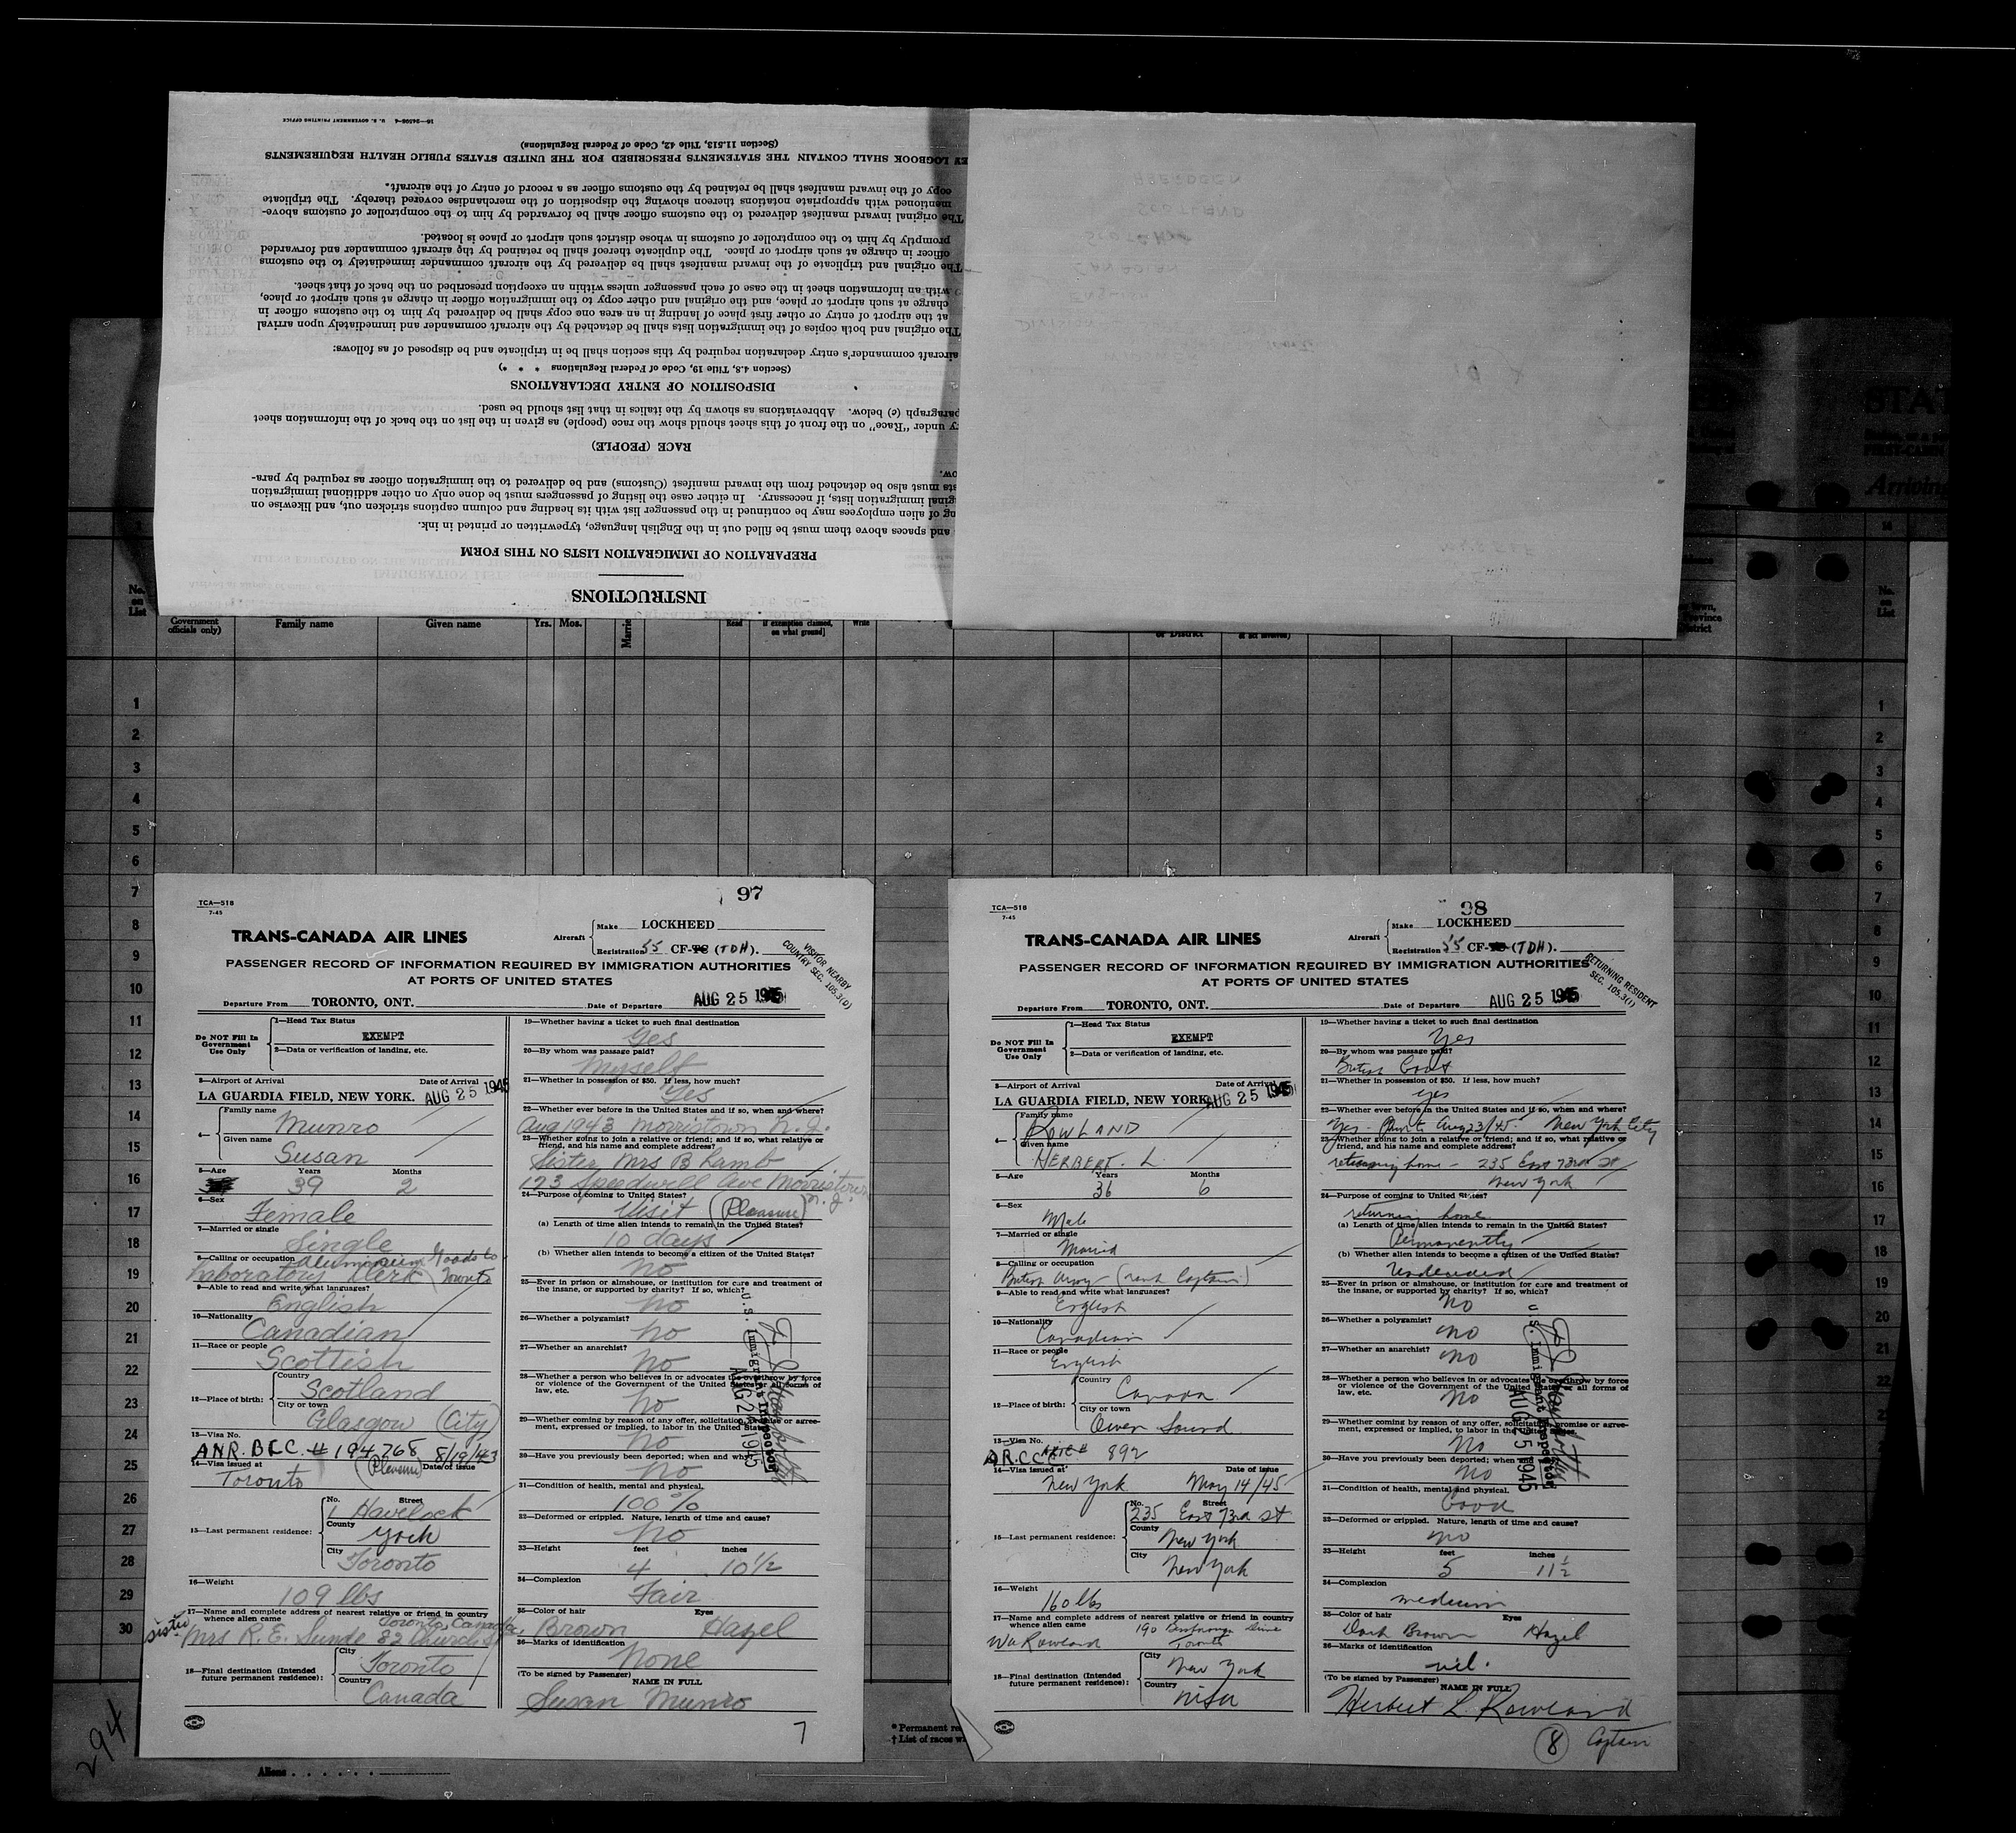 16—24506-4 U. S. GOVERNMENT PRINTING OFFICE
(Section 11.513, Title 42, Code of Federal Regulations)
LOGBOOK SHALL CONTAIN THE STATEMENTS PRESCRIBED FOR THE UNITED STATES PUBLIC HEALTH REQUIREMENTS
copy of the inward manifest shall be retained by the customs officer as a record of entry of the aircraft.
mentioned with appropriate notations thereon showing the disposition of the merchandise covered thereby. The triplicate
The original inward manifest delivered to the customs officer shall be forwarded by him to the comptroller of customs above-
promptly by him to the comptroller of customs in whose district such airport or place is located.
officer in charge at such airport or place. The duplicate thereof shall be retained by the aircraft commander and forwarded
The original and triplicate of the inward manifest shall be delivered by the aircraft commander immediately to the customs
with an information sheet in the case of each passenger unless within an exception prescribed on the back of that sheet.
charge at such airport or place, and the original and other copy to the immigration officer in charge at such airport or place,
at the airport of entry or other first place of landing in an area one copy shall be delivered by him to the customs officer in
The original and both copies of the immigration lists shall be detached by the aircraft commander and immediately upon arrival
aircraft commander's entry declaration required by this section shall be in triplicate and be disposed of as follows:
(Section 4.8, Title 19, Code of Federal Regulations * * *)
DISPOSITION OF ENTRY DECLARATIONS
paragraph (e) below. Abbreviations as shown by the italics in that list should be used.
under "Race" on the front of this sheet should show the race (people) as given in the list on the back of the information sheet
RACE (PEOPLE)
must also be detached from the inward manifest (Customs) and be delivered to the immigration officer as required by para-
immigration lists, if necessary. In either case the listing of passengers must be done only on other additional immigration
of alien employees may be continued in the passenger list with its heading and column captions stricken out, and likewise on
and spaces above them must be filled out in the English language, typewritten or printed in ink.
PREPARATION OF IMMIGRATION LISTS ON THIS FORM
INSTRUCTIONS
STAT
Arriving
No. on List
Government officials only)
Family name
Given name
Yrs. Mos.
Read
if exemption claimed, on what ground]
Write
or District
No. on List
1
2
3
4
5
6
7
8
9
10
11
12
13
14
15
16
17
18
19
20
21
22
23
24
25
26
27
28
29
30
TCA—518
7-45
97
TRANS-CANADA AIR LINES
Aircraft
Make LOCKHEED
Registration 55 CF-TC (TDH).
VISITOR NEARBY
COUNTRY SEC. 105.3(D)
PASSENGER RECORD OF INFORMATION REQUIRED BY IMMIGRATION AUTHORITIES
AT PORTS OF UNITED STATES
Departure From TORONTO, ONT. Date of Departure AUG 25 1945
Do NOT Fill In Government Use Only
1—Head Tax Status
EXEMPT
2—Data or verification of landing, etc.
3—Airport of Arrival Date of Arrival
LA GUARDIA FIELD, NEW YORK. AUG 25 1945
4—
Family name
Munro
Given name
Susan
5—Age Years Months
39 2
6—Sex
Female
7—Married or single
Single
8—Calling or occupation Aluminum Goods to
Laboratory Clerk (Toronto
9—Able to read and write what languages?
English
10—Nationality
Canadian
11—Race or people
Scottish
12—Place of birth:
Country
Scotland
City or town
Glasgow (City)
13—Visa No.
ANR. BCC. # 194,768 8/19/43
14—Visa issued at (Pleasure) Date of issue
Toronto
15—Last permanent residence:
No. Street
1 Havelock
County
York
City
Toronto
16—Weight
109 lbs
17—Name and complete address of nearest relative or friend in country
whence alien came Toronto, Canada.
sister
Mrs R. E. Sunde 82 Church St
18—Final destination (Intended
future permanent residence):
City
Toronto
Country
Canada
19—Whether having a ticket to such final destination
Yes
20—By whom was passage paid?
Myself
21—Whether in possession of $50. If less, how much?
Yes
22—Whether ever before in the United States and if so, when and where?
Aug 1943 Morristown N. J.
23—Whether going to join a relative or friend; and if so, what relative or
friend, and his name and complete address?
Sister Mrs B Lamb
173 Speedwell Ave Morristown
N. J.
24—Purpose of coming to United States?
Visit (Pleasure)
(a) Length of time alien intends to remain in the United States?
10 days
(b) Whether alien intends to become a citizen of the United States?
No
25—Ever in prison or almshouse, or institution for care and treatment of
the insane, or supported by charity? If so, which?
No
26—Whether a polygamist?
No
27—Whether an anarchist?
No
28—Whether a person who believes in or advocates the overthrow by force
or violence of the Government of the United States or all forms of
law, etc.
No
29—Whether coming by reason of any offer, solicitation, promise or agree-
ment, expressed or implied, to labor in the United States.
No
30—Have you previously been deported; when and why?
No
31—Condition of health, mental and physical.
100%
32—Deformed or crippled. Nature, length of time and cause?
No
33—Height feet inches
4 10½
34—Complexion
Fair
35—Color of hair Eyes
Brown Hazel
36—Marks of identification
None
(To be signed by Passenger) NAME IN FULL
Susan Munro
U.S. Immigrant Inspector
AUG 25 1945
7
294
* Permanent re
† List of races w
Aliens
TCA—518
7-45
98
TRANS-CANADA AIR LINES
Aircraft
Make LOCKHEED
Registration 55 CF- (TDH).
RETURNING RESIDENT
SEC. 105.3(1)
PASSENGER RECORD OF INFORMATION REQUIRED BY IMMIGRATION AUTHORITIES
AT PORTS OF UNITED STATES
Departure From TORONTO, ONT. Date of Departure AUG 25 1945
Do NOT Fill In Government Use Only
1—Head Tax Status
EXEMPT
2—Data or verification of landing, etc.
3—Airport of Arrival Date of Arrival
LA GUARDIA FIELD, NEW YORK. AUG 25 1945
4—
Family name
ROWLAND
Given name
HERBERT. L.
5—Age Years Months
36 6
6—Sex
Male
7—Married or single
Married
8—Calling or occupation
British Army (rank Captain)
9—Able to read and write what languages?
English
10—Nationality
Canadian
11—Race or people
English
12—Place of birth:
Country
Canada
City or town
Owen Sound
13—Visa No.
A.R.CCC 892
14—Visa issued at Date of issue
New York May 14/45
15—Last permanent residence:
No. Street
235 East 73rd St
County
New York
City
New York
16—Weight
160 lbs
17—Name and complete address of nearest relative or friend in country
whence alien came 190 Drive
Wm Rowland Toronto
18—Final destination (Intended
future permanent residence):
City
New York
Country
19—Whether having a ticket to such final destination
Yes
20—By whom was passage paid?
British Govt
21—Whether in possession of $50. If less, how much?
yes
22—Whether ever before in the United States and if so, when and where?
Yes - Aug 23/45 New York City
23—Whether going to join a relative or friend; and if so, what relative or
friend, and his name and complete address?
returning home - 235 East 73rd St
New York
24—Purpose of coming to United States?
returning home
(a) Length of time alien intends to remain in the United States?
Permanently
(b) Whether alien intends to become a citizen of the United States?
Undecided
25—Ever in prison or almshouse, or institution for care and treatment of
the insane, or supported by charity? If so, which?
No
26—Whether a polygamist?
No
27—Whether an anarchist?
No
28—Whether a person who believes in or advocates the overthrow by force
or violence of the Government of the United States or all forms of
law, etc.
No
29—Whether coming by reason of any offer, solicitation, promise or agree-
ment, expressed or implied, to labor in the United States.
No
30—Have you previously been deported; when and why?
No
31—Condition of health, mental and physical.
Good
32—Deformed or crippled. Nature, length of time and cause?
No
33—Height feet inches
5 11½
34—Complexion
medium
35—Color of hair Eyes
Dark Brown Hazel
36—Marks of identification
nil.
(To be signed by Passenger) NAME IN FULL
Herbert L. Rowland
Captain
8
U.S. Immigrant Inspector
AUG 25 1945